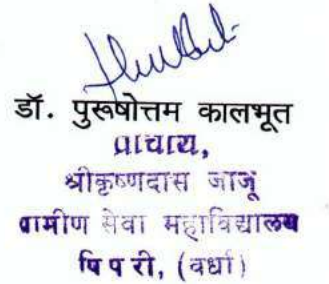 डॉ. पुरूषोत्तम कालभूत
प्राचार्य,
श्रीकृष्णदास जाजू
ग्रामीण सेवा महाविद्यालय
पिपरी, (वर्धा)